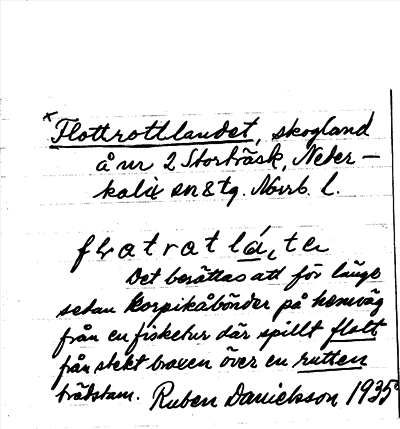 x Flottrottlandet, skogland
å nr 2 Storträsk, Neder-
kalix sn & tg. Norrb. l.
flratratlá,te
Det berättas att för länge
sedan korpikåbönder på hemväg
från en fisketur där spillt flott
från stekt braxen över en rutten
trädstam. Ruben Danielsson 1935